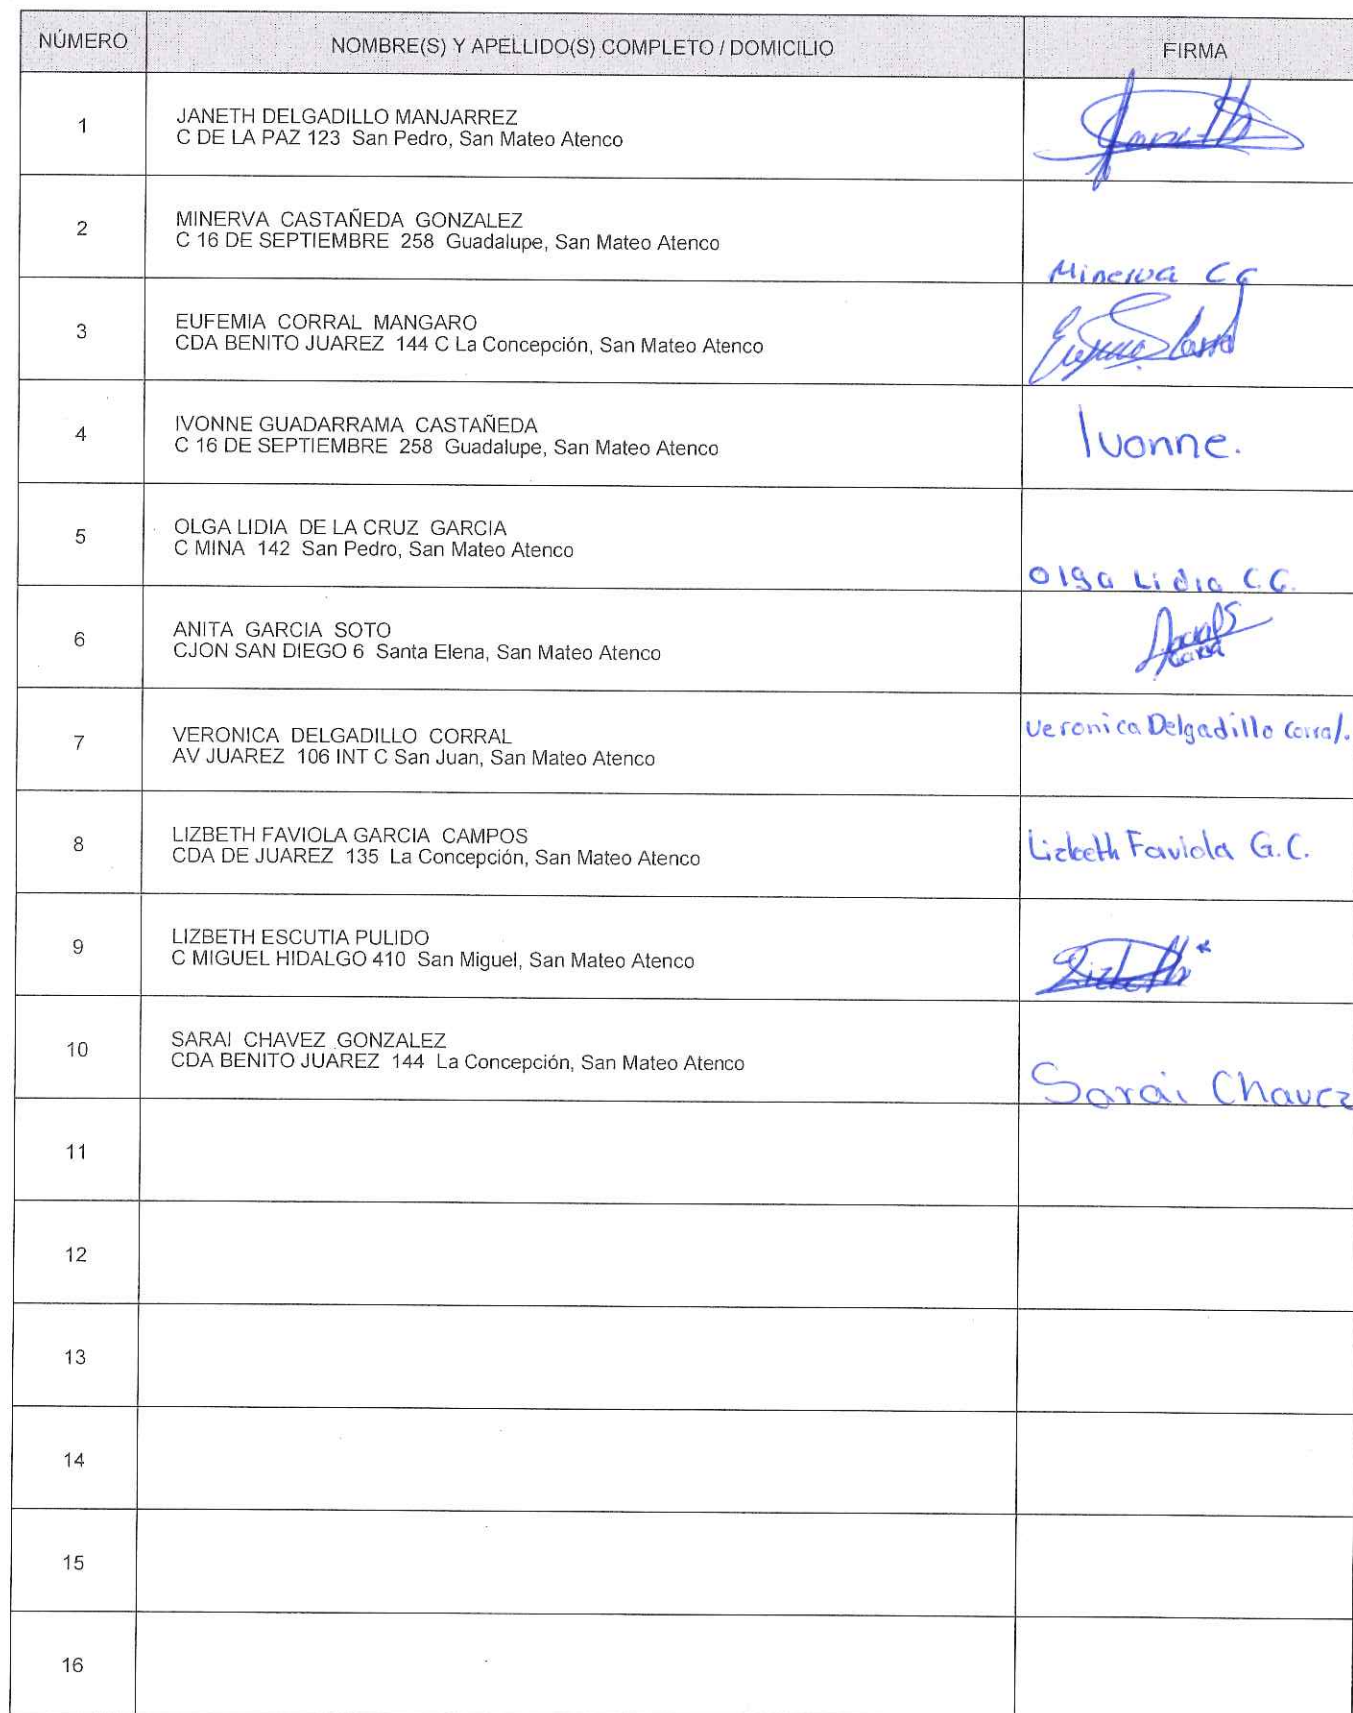 NÚMERO NOMBRE(S) Y APELLIDO(S) COMPLETO / DOMICILIO FIRMA
1 JANETH DELGADILLO MANJARREZ
C DE LA PAZ 123 San Pedro, San Mateo Atenco
Janeth
2 MINERVA CASTAÑEDA GONZALEZ
C 16 DE SEPTIEMBRE 258 Guadalupe, San Mateo Atenco
Minerva CG
3 EUFEMIA CORRAL MANGARO
CDA BENITO JUAREZ 144 C La Concepción, San Mateo Atenco
4 IVONNE GUADARRAMA CASTAÑEDA
C 16 DE SEPTIEMBRE 258 Guadalupe, San Mateo Atenco
Ivonne.
5 OLGA LIDIA DE LA CRUZ GARCIA
C MINA 142 San Pedro, San Mateo Atenco
Olga Lidia C.G.
6 ANITA GARCIA SOTO
CJON SAN DIEGO 6 Santa Elena, San Mateo Atenco
7 VERONICA DELGADILLO CORRAL
AV JUAREZ 106 INT C San Juan, San Mateo Atenco
Veronica Delgadillo Corral.
8 LIZBETH FAVIOLA GARCIA CAMPOS
CDA DE JUAREZ 135 La Concepción, San Mateo Atenco
Lizbeth Faviola G.C.
9 LIZBETH ESCUTIA PULIDO
C MIGUEL HIDALGO 410 San Miguel, San Mateo Atenco
Lizbeth
10 SARAI CHAVEZ GONZALEZ
CDA BENITO JUAREZ 144 La Concepción, San Mateo Atenco
Sarai Chavez
11
12
13
14
15
16